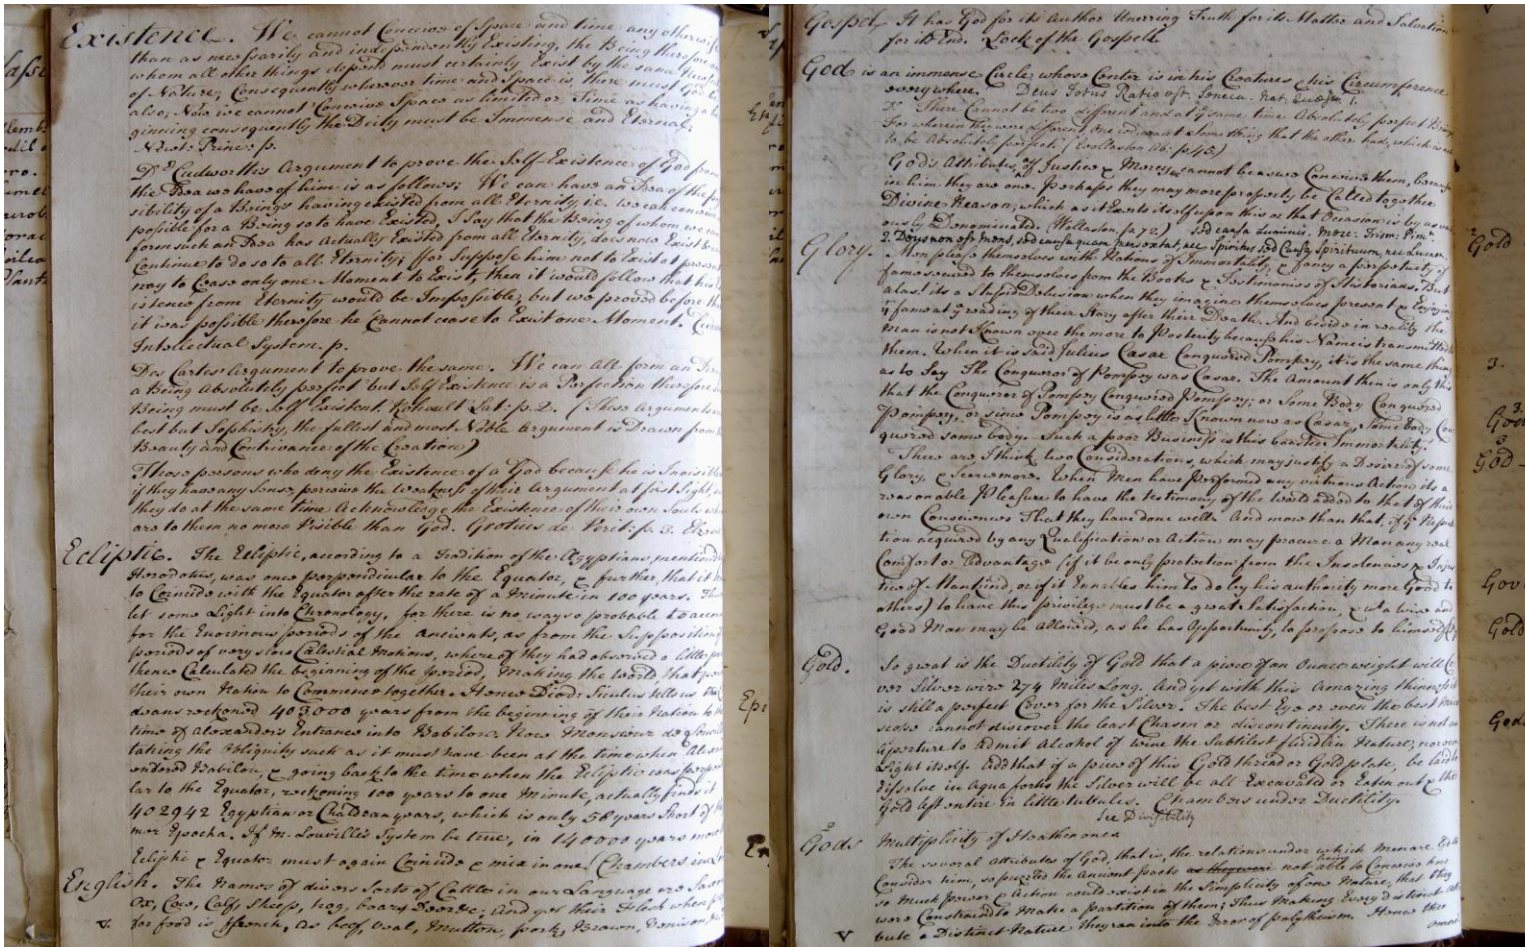 Existence. We cannot Conceive of Space and time any otherwise
than as necessarily and independently Existing, the Being therefore on
whom all other things depend must certainly Exist by the same Necessity
of Nature; Consequently wherever time and Space is, there must God be
also; Now we cannot Conceive Space as limited or Time as having a be
ginning consequently the Deity must be Immense and Eternal.
Newt: Princ: p.
Dr. Cudworth's Argument to prove the Self-Existence of God from
the Idea we have of him is as follows; We can have an Idea of the pos
sibility of a Beings having existed from all Eternity i.e. we can conceive
possible for a Being so to have Existed, I say that the Being of whom we can
form such an Idea has actually Existed from all Eternity, does now Exist &
Continue to do so to all Eternity; for Suppose him not to Exist at present
nay to Cease only one Moment to Exist, then it would follow that his Ex
istence from Eternity would be Impossible, but we proved before that
it was possible therefore he Cannot cease to Exist one Moment.
Intellectual System. p.
Des Cartes Argument to prove the same. We can All form an Idea
a Being Absolutely perfect but Self Existence is a Perfection therefore
Being must be Self Existent. Rohault Lat: p. 2. (These Arguments
best but Sophistry, the fullest and most Noble Argument is Drawn from
Beauty and Contrivance of the Creation)
Those persons who deny the Existence of a God because he is Invisible
if they have any Sense, perceive the Weakness of their Argument at first Sight,
they do at the same time Acknowledge the Existence of their own Souls
are to them no more Visible than God. Grotius de Verit: p. 3.
Ecliptic. The Ecliptic, according to a Tradition of the Ægyptians mentiond
Herodotus, was once perpendicular to the Equator, & further, that it
to Coincide with the Equator after the rate of a Minute in 100 years. This
let some Light into Chronology, for there is no way so probable to accou
for the Enormous periods of the Ancients, as from the Supposition
periods of very slow Cælestial Motions, whereof they had observed a little
thence Calculated the beginning of the period, Making the World & their
their own Nation to Commence together. Hence Diod: Siculus tells us
deans reckoned 403000 years from the beginning of their Nation to
time of Alexander's Entrance into Babilon. Now Monsieur de
taking the Obliquity such as it must have been at the time when
entered Babilon, & going back to the time when the Ecliptic was perp
lar to the Equator, reckoning 100 years to one Minute, actually finds it
402942 Egyptian or Chaldean years, which is only 58 years Short of
mer Epocha. If M. Louville's System be true, in 140000 years more
Ecliptic & Equator must again Coincide & mix in one. (Chambers in
English. The Names of divers Sorts of Cattle in our Language are
Ox, Cow, Calf, Sheep, hog, boar, Deer &c; And yet their Flesh when
for food is French, as beef, Veal, Mutton, pork, Brawn, Venison,
Gospel, It has God for its Author Unerring Truth for its Matter and Salvation
for its End. Lock of the Gospell
God is an immense Circle whose Center is in his Creatures & his Circumference
everywhere. Deus Totus Ratio est. Seneca. Nat. Quæst: 1.
There Cannot be two different and at ye same time Absolutely perfect Beings
For wherein they were different one wd. want Something that the other had, which is not
to be Absolutely perfect. (Wollaston Ab: p. 45)
God's Attributes of Justice & Mercy cannot be as we Conceive them, because
in him they are one. Perhaps they may more properly be Called together
Divine Reason, which as it Exerts itself upon this or that Occasion is by us vari
ously Denominated. (Wollaston, pa 72)
Glory. Men please themselves with Notions of Immortality, & fancy a perpetuity of
fame secured to themselves from the Books & Testimonies of Historians. But
alas! its a Stupid Delusion when they imagine themselves present & Enjoying
yt fame at ye reading of their Story after their Death. And beside in reality the
Man is not Known ever the more to Posterity because his Name is transmitted to
them. When it is said Julius Cæsar Conquered Pompey, it is the same thing
as to say The Conqueror of Pompey was Cæsar. The Amount then is only this
that the Conqueror of Pompey Conquered Pompey; or Some Body Conquered
Pompey, or since Pompey is as little Known now as Cæsar, Some body Con
quered some body. Such a poor Business is this boasted Immortality.
There are I think two Considerations, which may justify a Desire of some
Glory, & Scarce more. When Men have performed any virtuous Action its a
reasonable Pleasure to have the testimony of the world added to that of their
own Consciences That they have done well. And more than that, if ye Reputa
tion acquired by any Qualification or Action may procure a Man any real
Comfort or Advantage (if it be only protection from the Insolences & Injus
tice of Mankind, or if it Ennables him to do by his authority more Good to
others) to have this privilege must be a great Satisfaction, & wt. a wise and
Good Man may be Allowed, as he has Opportunity, to propose to himself
Gold. So great is the Ductility of Gold that a piece of an ounce weight will Co
ver Silver wire 274 Miles Long. And yet with this Amazing thinness
is still a perfect Cover for the Silver. The best Eye or even the best Micro
scope cannot discover the least Chasm or discontinuity. There is not an
Aperture to Admit Alcohol of wine the Subtilest fluid in Nature, nor even
Light itself. Add that if a piece of this Gold thread or Gold plate, be laid to
Dissolve in Aqua fortis the Silver will be all Excavated or Eaten out & the
Gold left entire in little tubules. Chambers under Ductility.
See Divisibility
Gods Multiplicity of Heathen ones
The several attributes of God, that is, the relations under which Men are led to
Consider him, so puzzled the Ancient poets not being able to Conceive how
so much power & Action could exist in the Simplicity of one Nature, that they
were Constrained to Make a partition of them; Thus Making Every distinct Attri
bute a Distinct Nature they ran into the Error of polytheism. Hence
Gold
3.
God
God
Gov
Gold
God